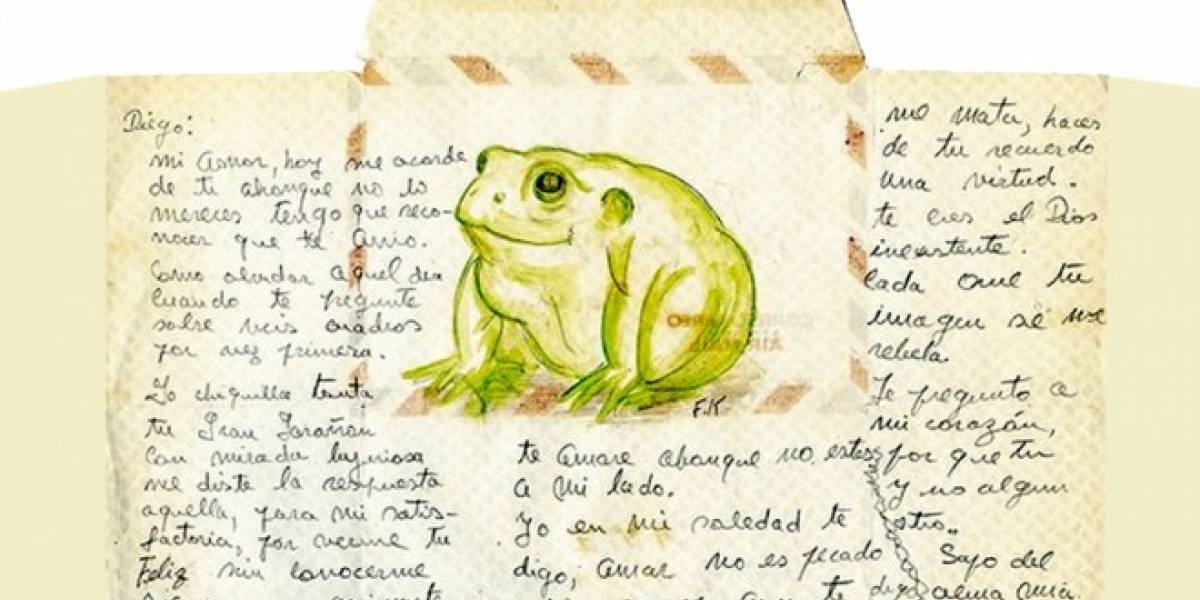 Diego:
mi amor, hoy me acorde
de ti ahonque no lo
mereces tengo que reco-
nocer que te amo.
Como olvidar aquel dia
cuando te pregunte
sobre mis cuadros
por vez primera.
Yo chiquilla tonta
tu Gran
con mirada lujuriosa
me diste la respuesta
aquella, para mi satis-
factoria, por verme tu
Feliz sin conocerme
F.K
te amare ahonque no estes
a mi lado.
Yo en mi soledad te
digo, amar no es pecado
te
me mata, haces
de tu recuerdo
una virtud.
te eres el Dios
Cada que tu
imagen se me
rebela.
Le pregunto a
mi corazón,
por que tu
y no algun
otro..
Sapo del
alma mia.